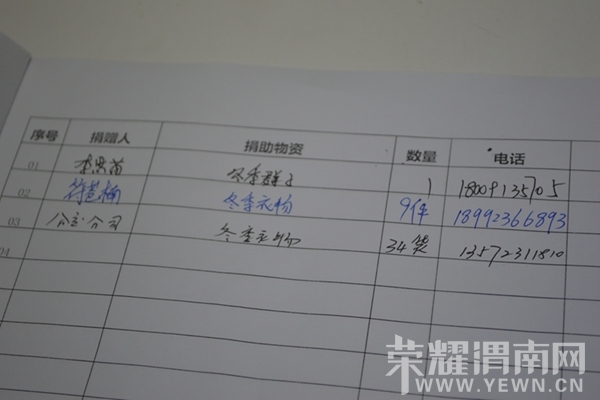 序号 捐赠人 捐助物资 数量 电话
01 李思苗 冬季鞋子 1 18009135705
02 冬季衣物 9件 18992366893
03 公司 冬季衣物 34袋 13572311810
04
荣耀渭南网
WWW.YEWN.CN